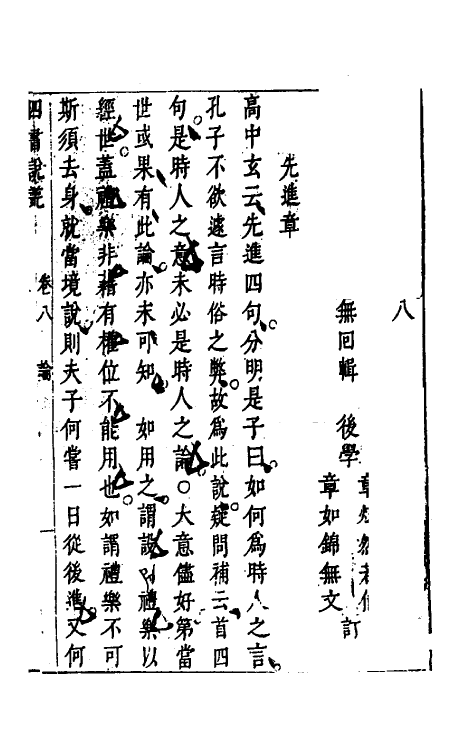 八
無回輯　後學
章如錦無文　訂
先進章
高中玄云先進四句分明是子曰如何為時人之言
孔子不欲遽言時俗之弊故為此說疑問補云首四
句是時人之意未必是時人之論○大意儘好第當
世或果有此論亦未可知　如用之謂設以禮樂以
經世蓋禮樂非藉有權位不能用也如謂禮樂不可
斯須去身就當境說則夫子何嘗一日從後進又何
四書說叢　卷八　論　一